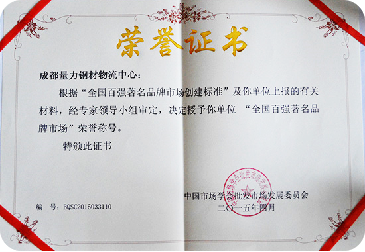 荣誉证书
成都量力钢材物流中心：
根据“全国百强著名品牌市场创建标准”及你单位上报的有关
材料，经专家领导小组审定，决定授予你单位 “全国百强著名品
牌市场”荣誉称号。
特颁此证书
中国市场学会批发市场发展委员会
编 号：
二〇一五年四月